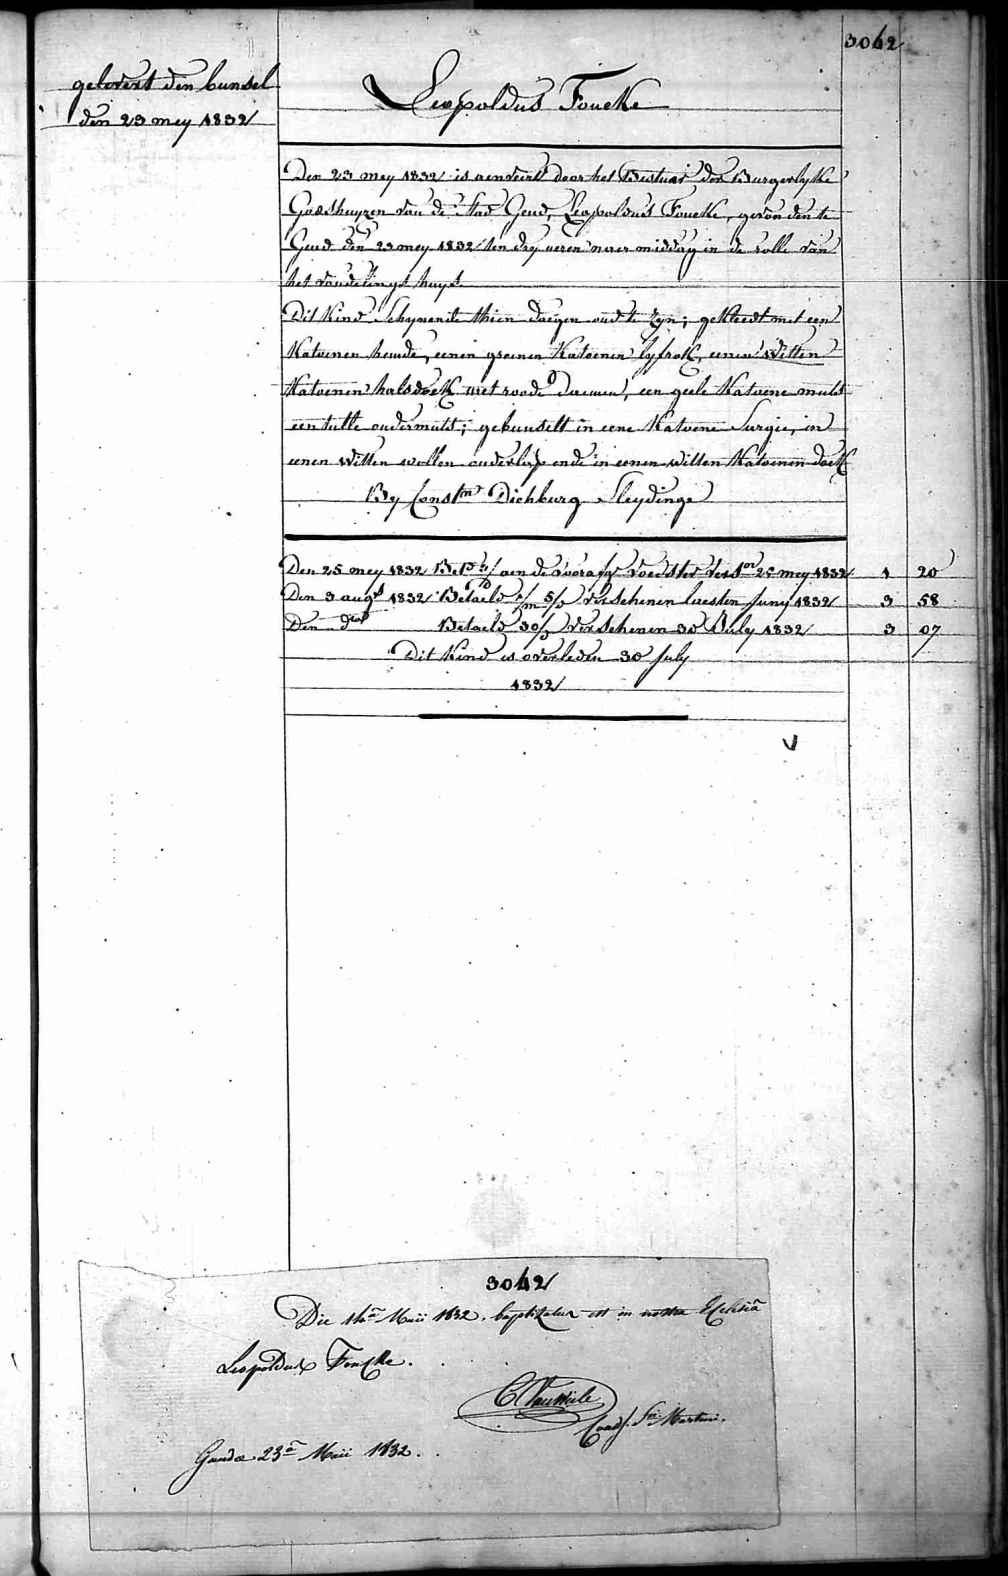 3042
gelevert den bunsel
den 23 mey 1832
Leopoldus Foucke
Den 23 mey 1832 is aenveird door het Bestuur der Burgerlyke
Godshuyzen van de Stad Gend, Leopoldus Foucke, gevonden te
Gend den 23 mey 1832 ten dry ueren naer middag in de rolle van
het vondelingshuys.
Dit Kind Schynende thien daegen oud te zyn; gekleedt met een
Katoenen hemde, eenen groenen Katoenen lyfrok, eenen witten
Katoenen halsdoek met roode bloemen, een geele Katoene muts
een tulle ondermuts; gebunselt in eene Katoene Sargie, in
eenen witten wollen onderlyf ende in eenen witten Katoenen doek
By Const.n Dichburg Sleydinge
Den 25 mey 1832 Bet.d aen de voorafg. voedster vers.en 25 mey 1832 1 20
Den 3 aug.s 1832 Betaeld verschenen laesten Juny 1832 3 58
Den d.o Betaeld 30/ verschenen 30 July 1832 3 07
Dit Kind is overleden 30 July
1832
3042
Die 14a Maii 1832. baptizatus est in nostra Ecclesia
Leopoldus Foucke.
Coadj. Sti Martini.
Gandæ 23a Maii 1832.